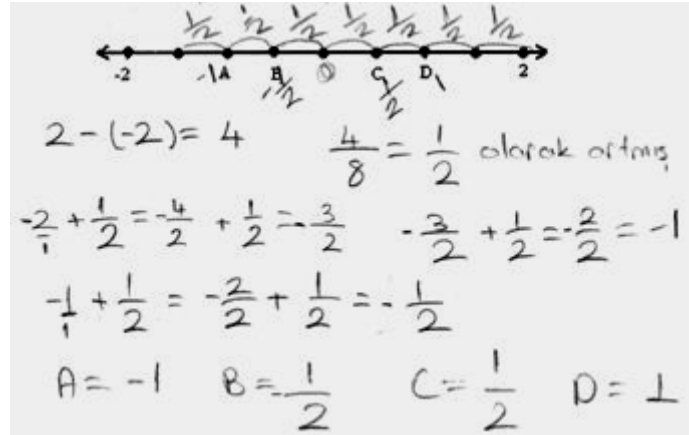 1/2 1/2 1/2 1/2 1/2 1/2 1/2
-2 -1 A B 0 C D 1 2
-1/2 1/2
2 - (-2) = 4 4/8 = 1/2 olarak artmış
-2/1 + 1/2 = -4/2 + 1/2 = -3/2 -3/2 + 1/2 = -2/2 = -1
-1/1 + 1/2 = -2/2 + 1/2 = -1/2
A = -1 B = -1/2 C = 1/2 D = 1